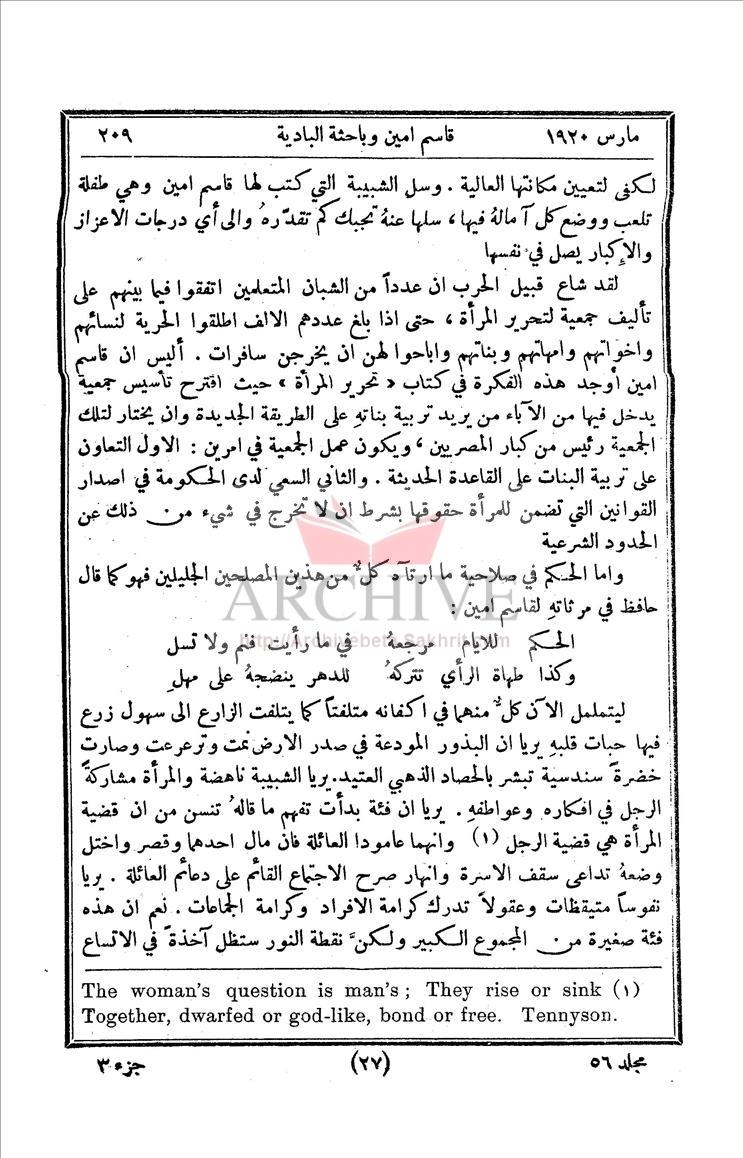 مارس ١٩٢٠ قاسم امين وباحثة البادية ٢٠٩
لكفى لتعيين مكانتها العالية . وسل الشبيبة التي كتب لها قاسم امين وهي طفلة
تلعب ووضع كل آماله فيها ، سلها عنهُ تجبك كم تقدّرهُ والى أي درجات الاعزاز
والإكبار يصل في نفسها
لقد شاع قبيل الحرب ان عدداً من الشبان المتعلمين اتفقوا فيما بينهم على
تأليف جمعية لتحرير المرأة ، حتى اذا بلغ عددهم الالف اطلقوا الحرية لنسائهم
واخواتهم وامهاتهم وبناتهم واباحوا لهن ان يخرجن سافرات . أليس ان قاسم
امين أوجد هذه الفكرة في كتاب « تحرير المرأة » حيث اقترح تأسيس جمعية
يدخل فيها من الآباء من يريد تربية بناتهِ على الطريقة الجديدة وان يختار لتلك
الجمعية رئيس من كبار المصريين ، ويكون عمل الجمعية في امرين : الاول التعاون
على تربية البنات على القاعدة الحديثة . والثاني السعي لدى الحكومة في اصدار
القوانين التي تضمن للمرأة حقوقها بشرط ان لا تخرج في شيء من ذلك عن
الحدود الشرعية
واما الحكم في صلاحية ما ارتآه كلٌّ من هذين المصلحين الجليلين فهو كما قال
حافظ في مرثاتهِ لقاسم امين :
ARCHIVE
http://Archivebeta.Sakhrit.com
الحكم للايام مرجعهُ في ما رأيت فنم ولا تسل
وكذا طهاة الرأي تتركهُ للدهر ينضجهُ على مهلِ
ليتململ الآن كلٌّ منهما في اكفانه متلفتاً كما يتلفت الزارع الى سهول زرع
فيها حبات قلبهِ يريا ان البذور المودعة في صدر الارض نمت وترعرعت وصارت
خضرةً سندسية تبشر بالحصاد الذهبي العتيد. يريا الشبيبة ناهضة والمرأة مشاركةً
الرجل في افكاره وعواطفهِ . يريا ان فئة بدأت تفهم ما قالهُ تنسن من ان قضية
المرأة هي قضية الرجل (١) وانهما عامودا العائلة فان مال احدهما وقصر واختل
وضعهُ تداعى سقف الاسرة وانهار صرح الاجتماع القائم على دعائم العائلة . يريا
نفوساً متيقظات وعقولاً تدرك كرامة الافراد وكرامة الجماعات . نعم ان هذه
فئة صغيرة من المجموع الكبير ولكنَّ نقطة النور ستظل آخذةً في الاتساع
The woman's question is man's ; They rise or sink (١)
Together, dwarfed or god-like, bond or free. Tennyson.
مجلد ٥٦ (٢٧) جزء ٣